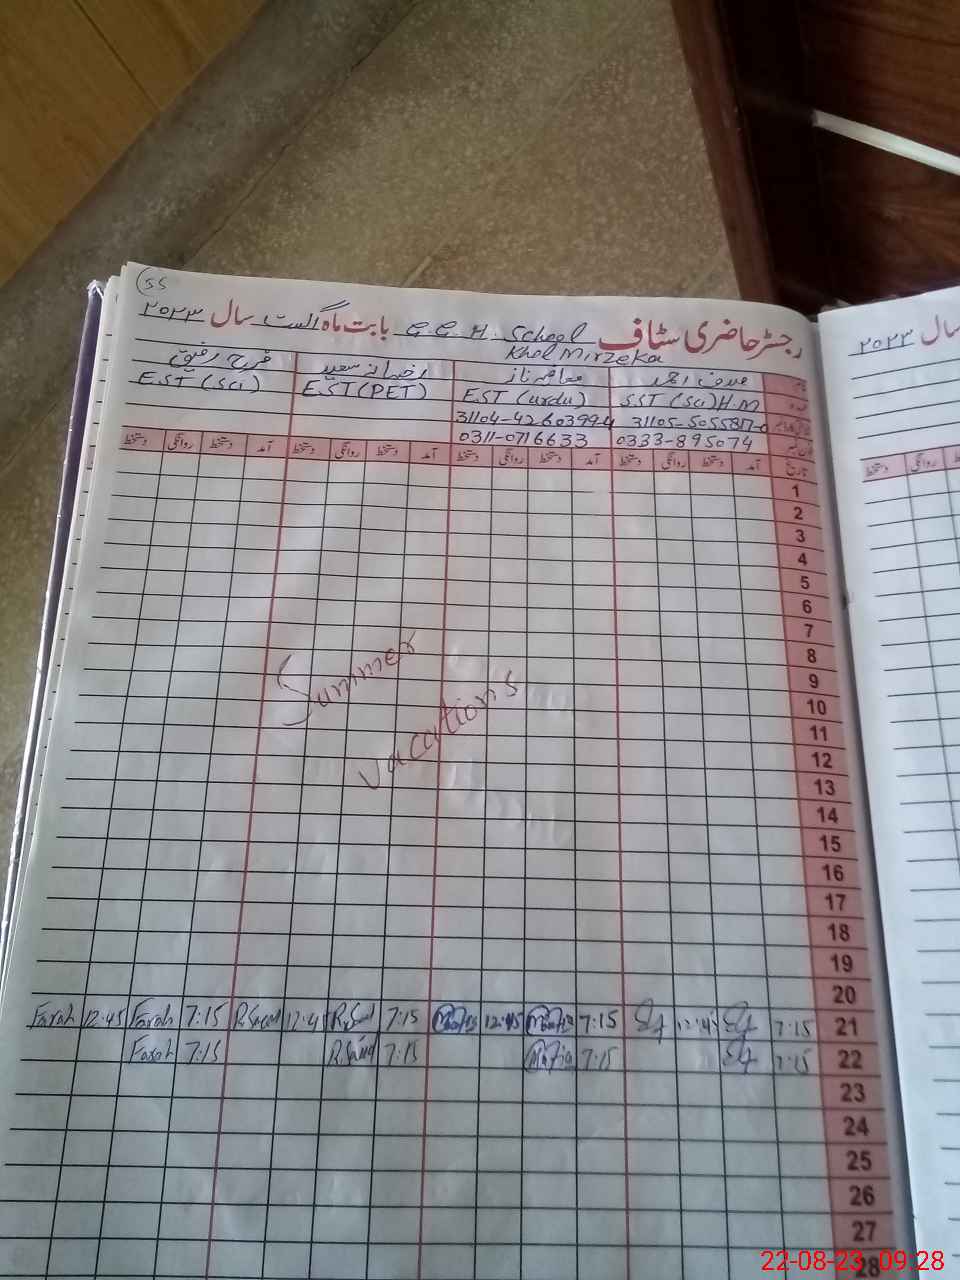 55
رجسٹر حاضری سٹاف G.G.H. School بابت ماہ اگست سال ۲۰۲۳
Khol Mirzeka
نام
معافیہ ناز فرح رفیق
SST (Sci) H.M EST (urdu) EST (PET) EST (Sci)
31104-4260399-4
0311-0716633 0333-895074
تاریخ آمد دستخط روانگی دستخط آمد دستخط روانگی دستخط آمد دستخط روانگی دستخط آمد دستخط روانگی دستخط
1
2
3
4
5
6
7
8
9
10
11
12
13
14
15
16
17
18
19
20
Summer
vacations
Farah 12:45 Farah 7:15 R.Saeed 12:45 R.Saeed 7:15 12:45 7:15 12:45 7:15 21
Farah 7:15 R.Saeed 7:15 7:15 7:15 22
23
24
25
26
27
28
سال ۲۰۲۳
روانگی دستخط
22-08-23 09:28